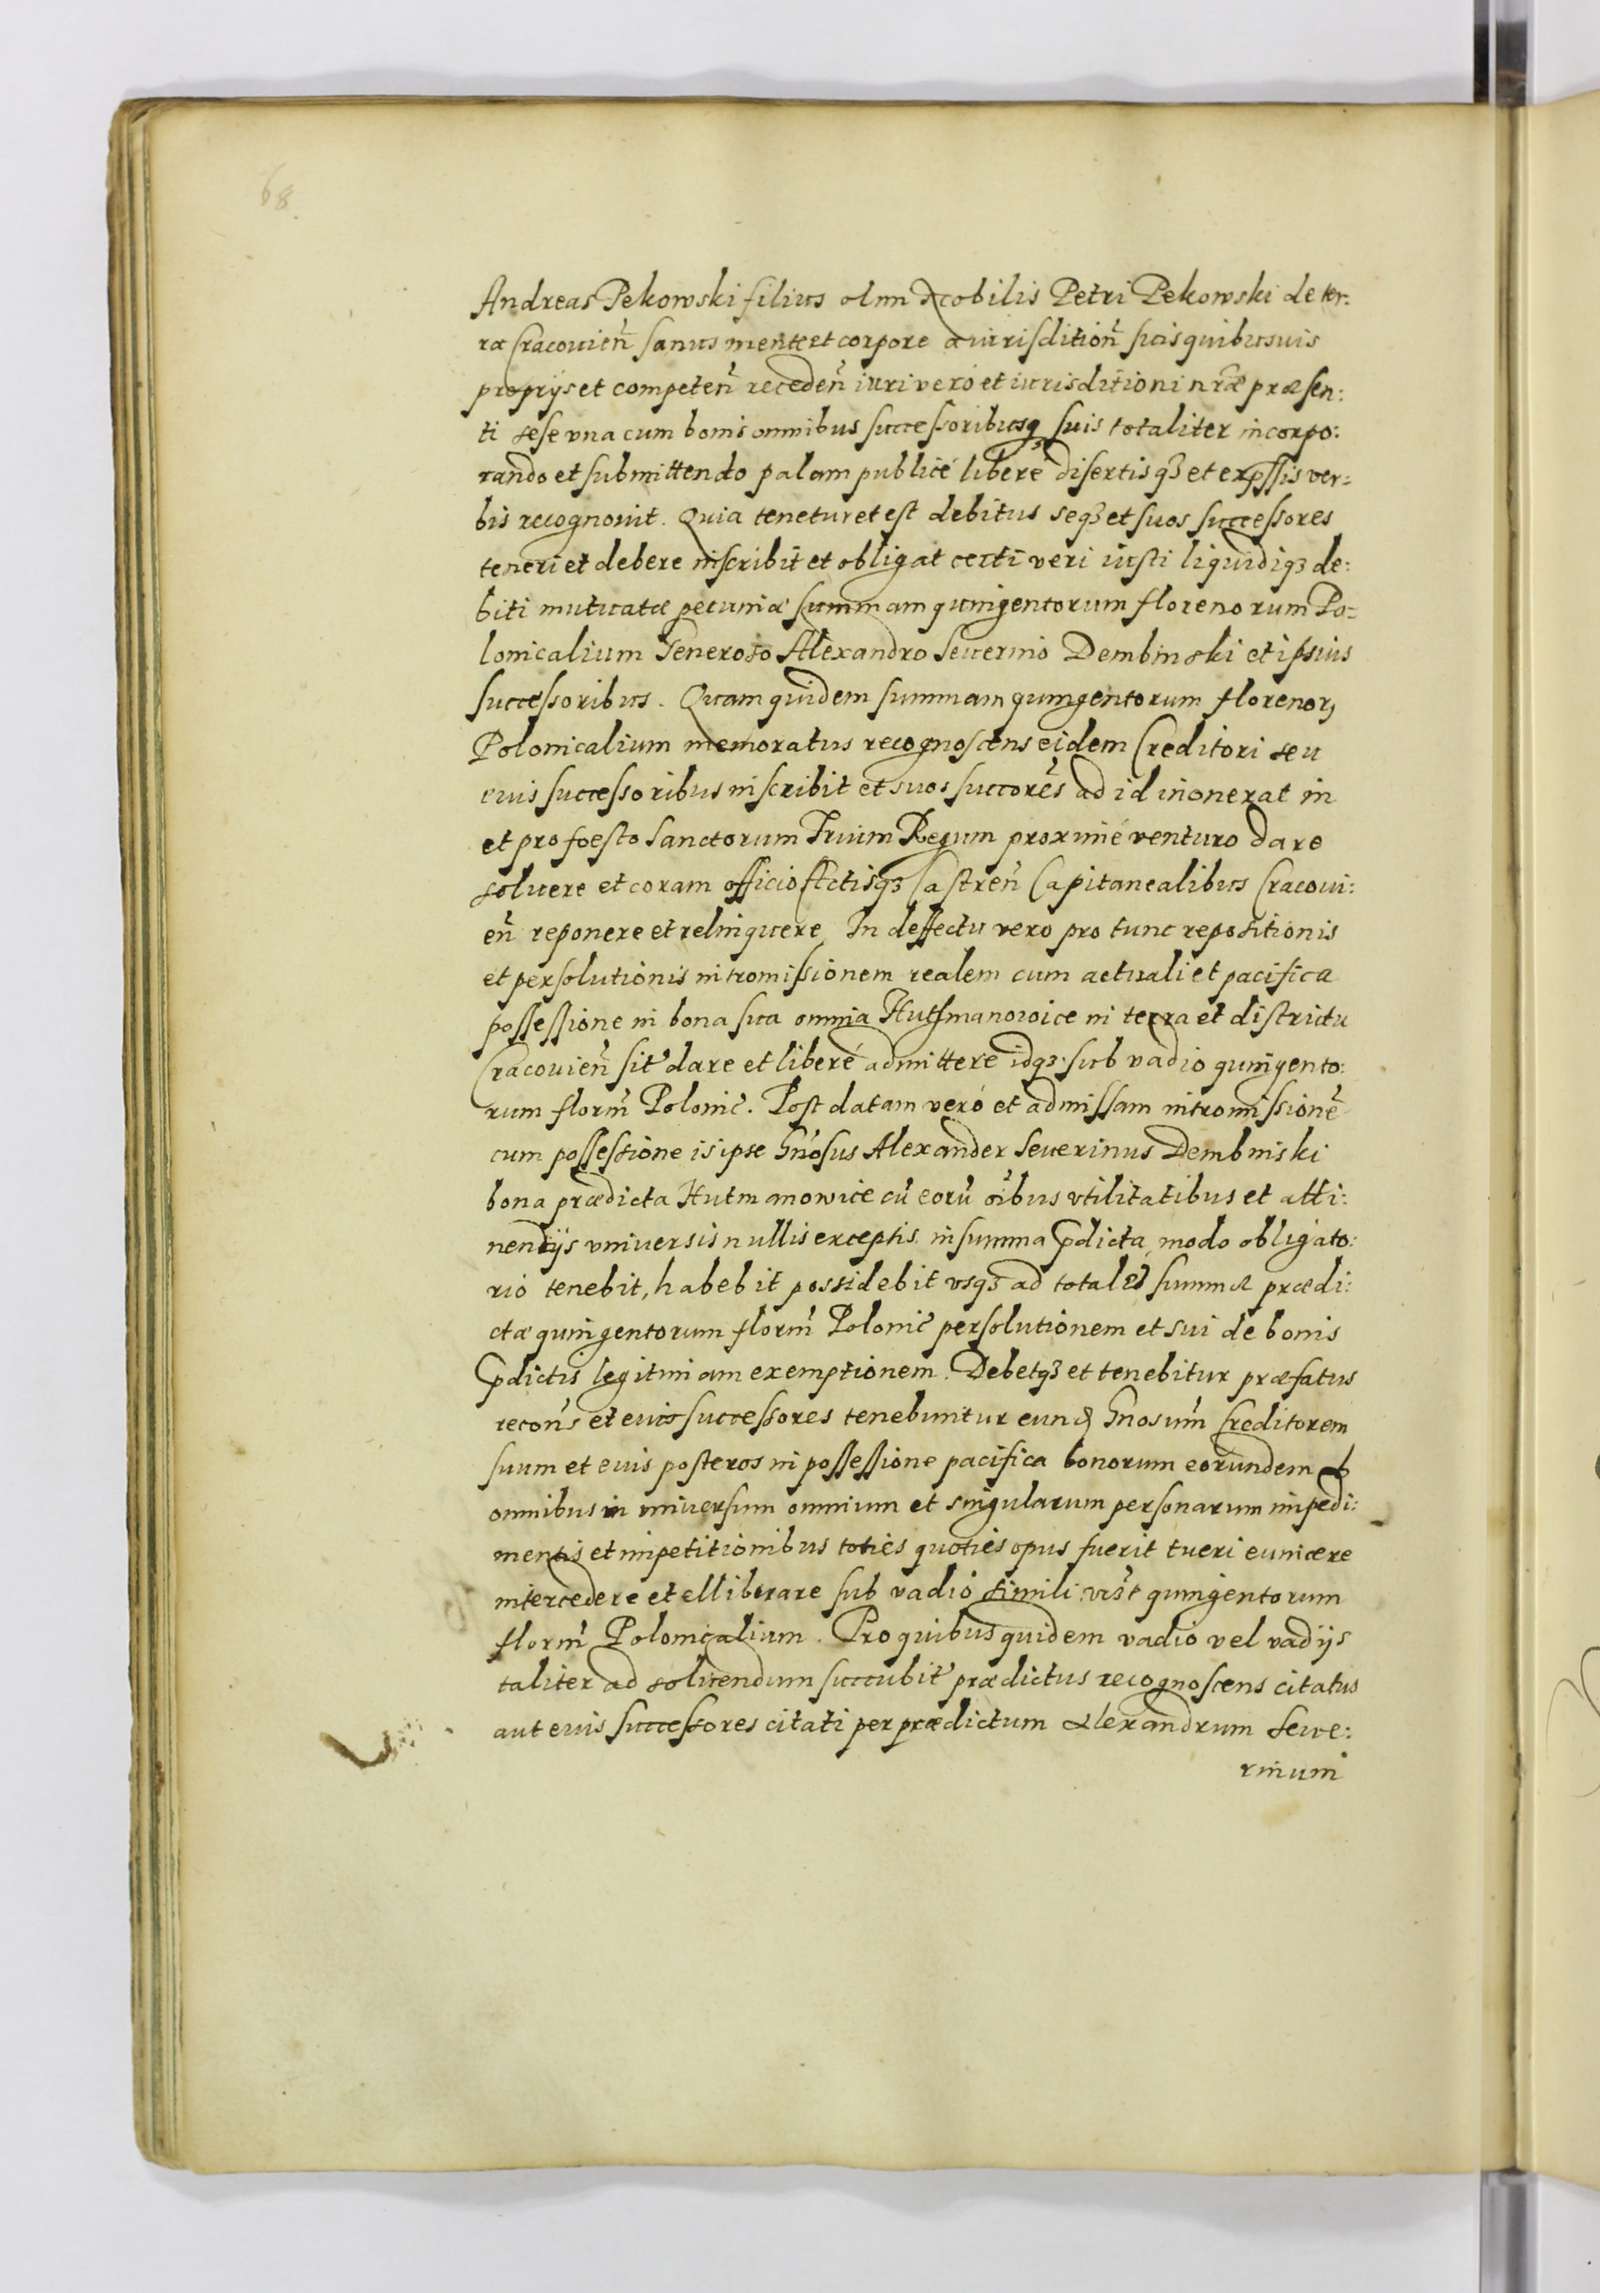 68.
Andreas Pekowski filius olim Nobilis Petri Pekowski de ter:
ræ Cracouień sanus mente et corpore a iurisditioń suis quibusuis
proprijs et competeń recedeń iuri vero et iurisditioni nr̃æ præsen:
ti sese vna cum bonis omnibus successoribusq; suis totaliter incorpo:
rando et submittendo palam publicé liberé disertisq3 et exp̃ssis ver:
bis recognouit. Quia tenetur et est debitus seq3 et suos successores
teneri et debere inscribit et obligat certi veri iusti liquidiq3 de:
biti mutuatæ pecuniæ summam quingentorum florenorum Po=
lonicalium Generoso Alexandro Seuerino Dembinski et ipsius
successoribus. Quam quidem summam quingentorum florenor,
Polonicalium memoratus recognoscens eidem Creditori seu
euis successoribus inscribit et suos succores̃ ad id inonerat in
et pro foesto Sanctorum Trium Regum proximé venturo dare
soluere et coram officio Actisq3 Castreń Capitanealibus Cracoui:
eń reponere et relinquere. In deffectu vero pro tunc repositionis
et persolutionis intromissionem realem cum actuali et pacifica
possessione in bona sua omnia Hutsmanowice in terra et districtu
Cracouień sit̃ dare et liberé admittere idq3 sub vadio quingento:
rum florm̃ Polonic̃. Post datam veró et admissam intromissionẽ
cum possessione is ipse Gn̄osus Alexander Seuerinus Dembinski
bona prædicta Hutmanowice cũ eorũ oĩbus vtilitatibus et atti:
nentijs vniuersis nullis exceptis in summa p̃dicta modo obligato:
rio tenebit, habebit possidebit vsq3 ad totalẽ summæ prædi:
ctæ quingentorum florm̃ Polonic̃ persolutionem et sui de bonis
p̃dictis legitimam exemptionem. Debetq3 et tenebitur præfatus
recon̄s et euis successores tenebuntur eund Gn̄osum̃ Creditorem
suum et euis posteros in possessione pacifica bonorum eorundem ab
omnibus in vniuersum omnium et singularum personarum impedi:
mentis et impetitionibus toties quoties opus fuerit tueri euincere
intercedere et elliberare sub vadio simili vr̃st quingentorum
florm̃ Polonicalium. Pro quibus quidem vadio vel vadijs
taliter ad soluendum succubit̃ prædictus recognoscens citatus
aut euis successores citati per prædictum Alexandrum Seue:
rinum